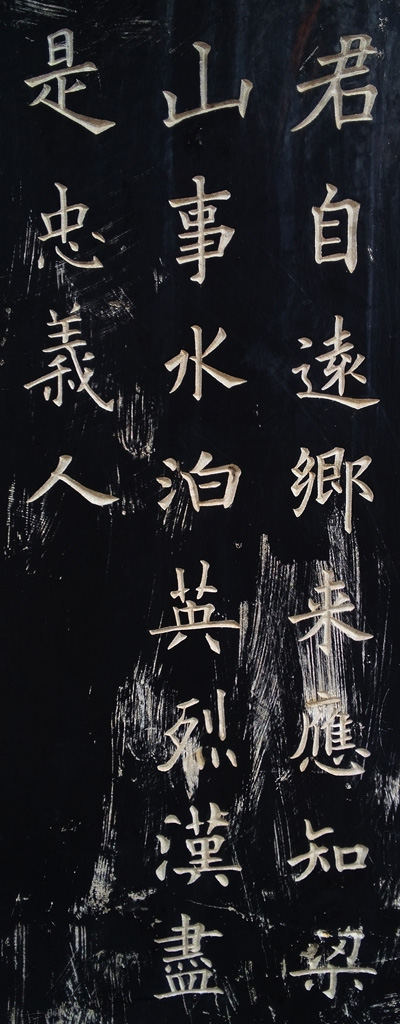 君自遠鄉来應知梁
山事水泊英烈漢盡
是忠義人